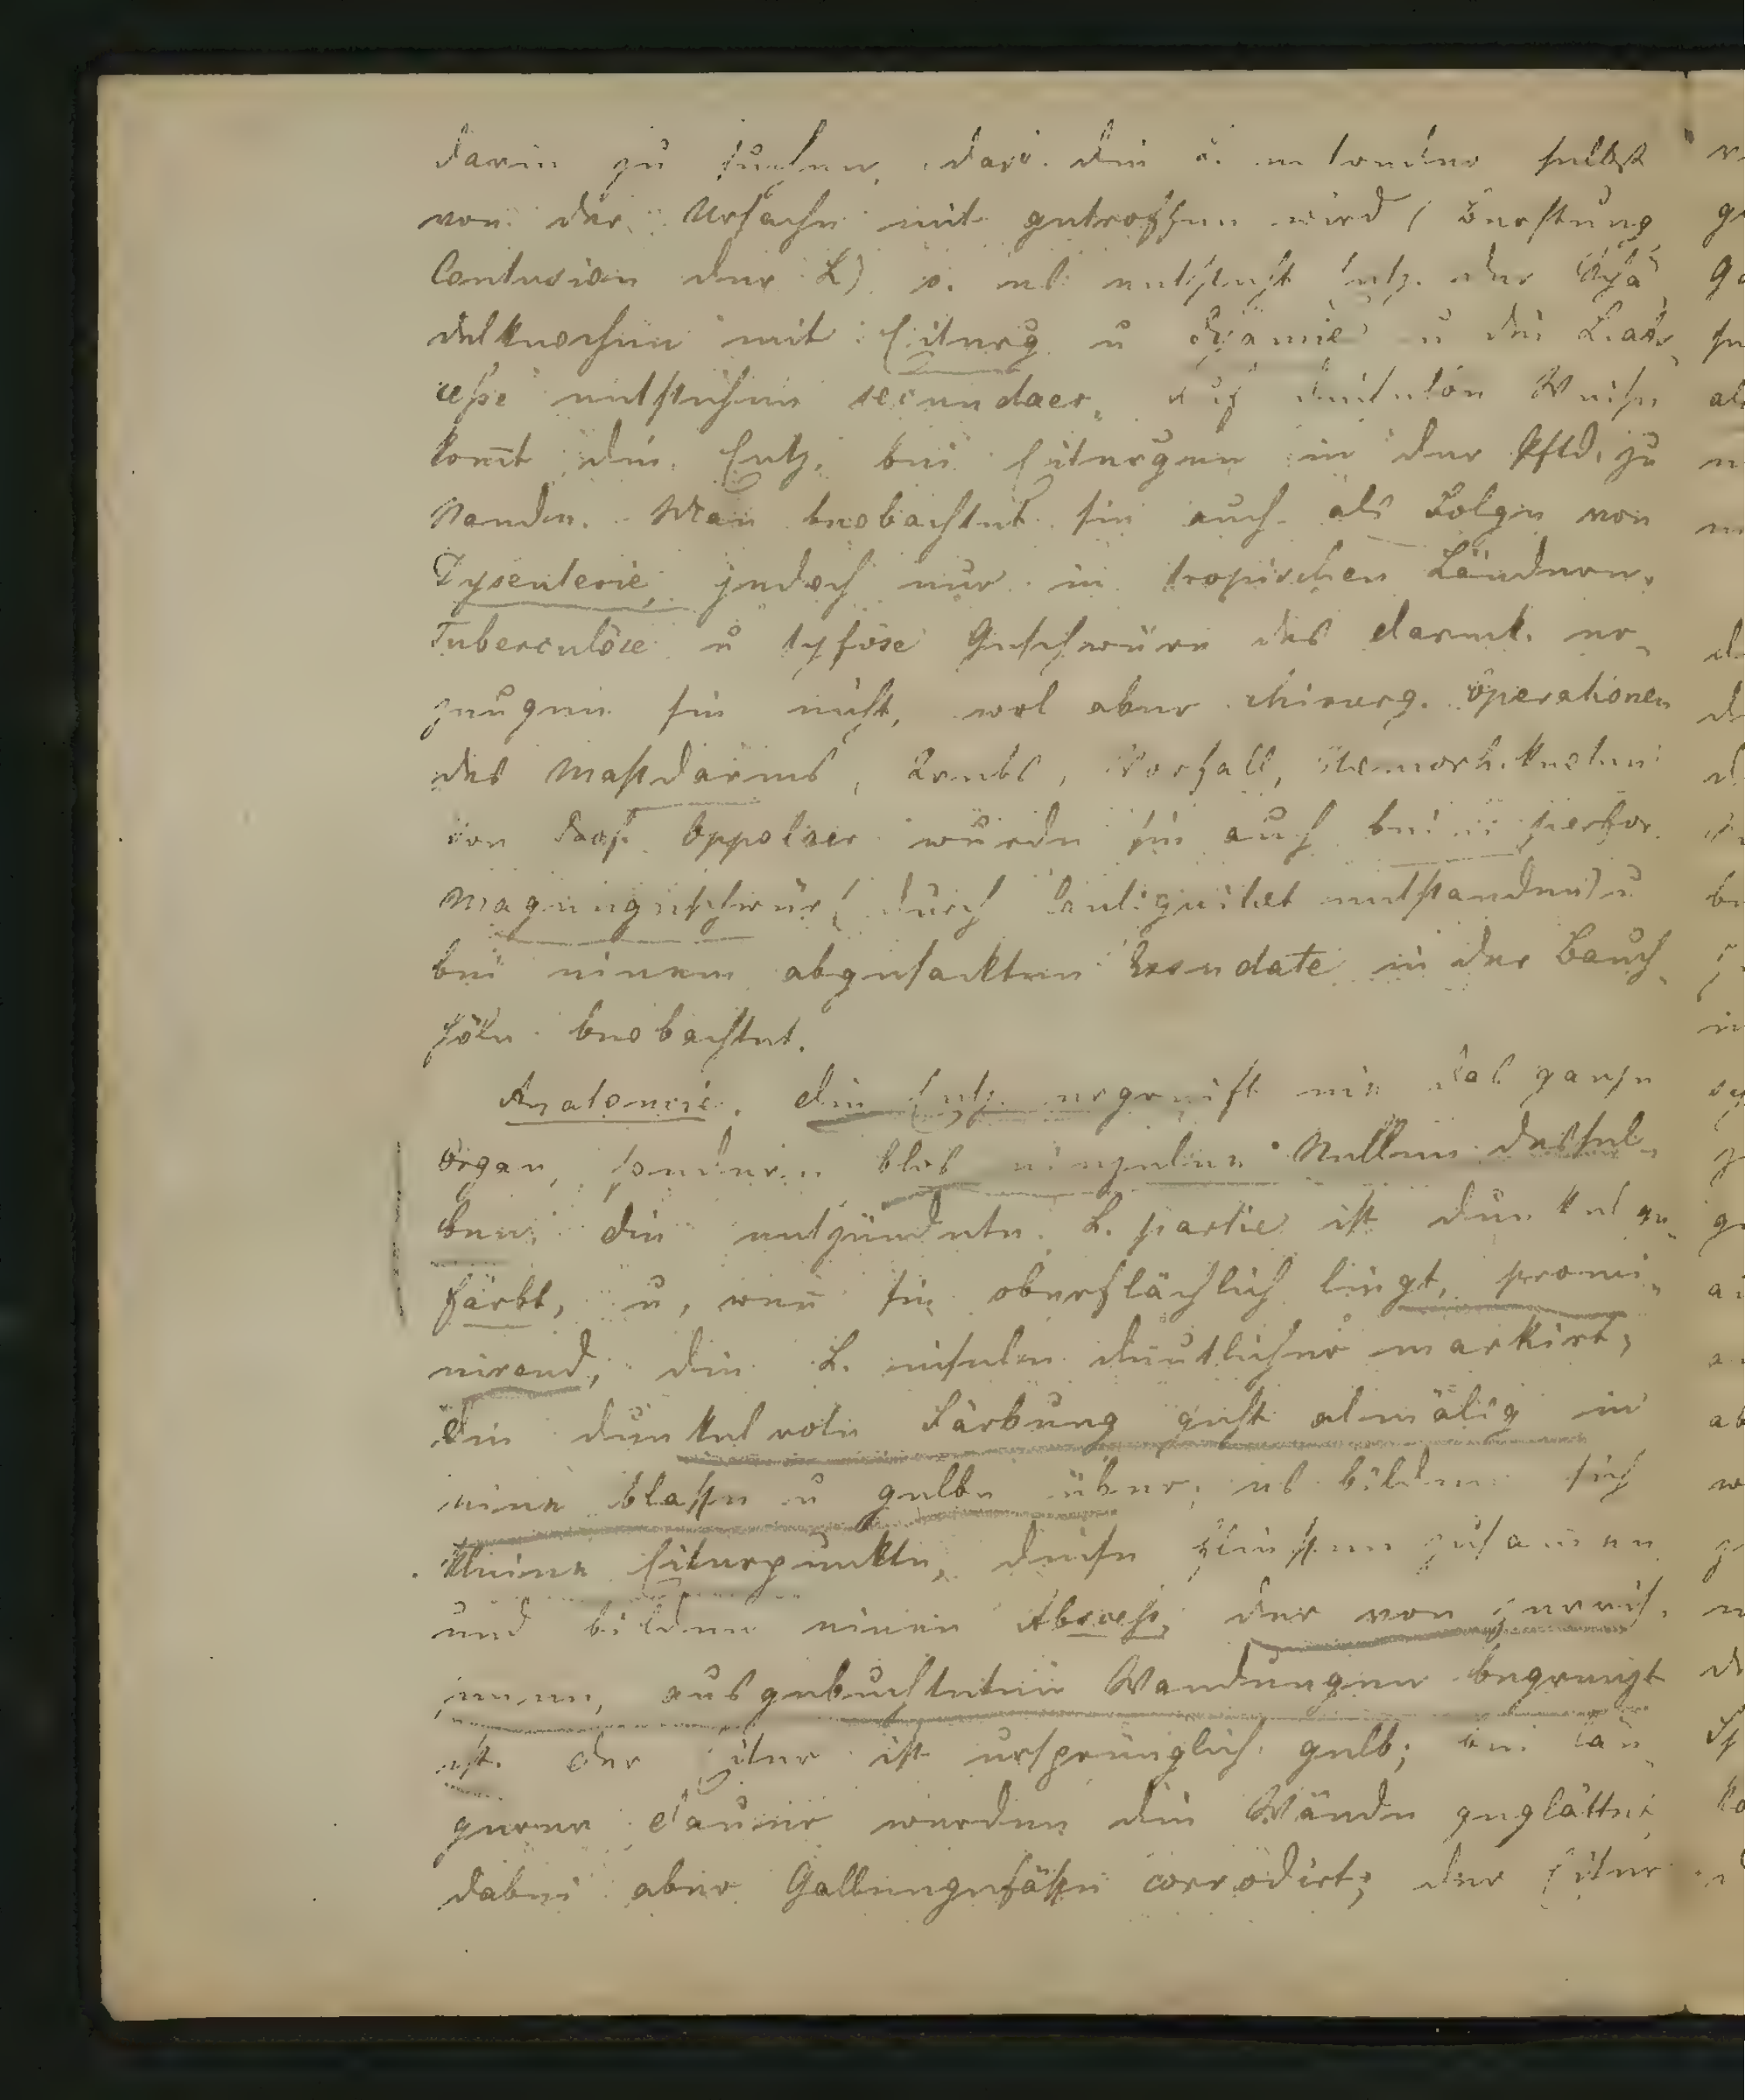 darin zu suchen, das. die L. besonders selbst
von der Ursache mit getroffen wird (Berstung
Contusion der L) o. es entsteht Entz. der Schä-
delknochen mit Eiterug u Pyämie u die L. absc-
cesse entstehen secundaer. Auf dieselbe Weise
kom̄t die Entz. bei Eiterugen in der Pftd. zu
Stande. Man beobachtet sie auch als Folge von
Dysenterie, jedoch nur in tropischen Ländern.
Tuberculöse u tyföse Geschwüre des Darmk. er-
zeugen sie nicht, wol aber chirurg. Operationen
des Mastdarms, Krebs, Vorfall, Hemorh. Knoten
von Prof Oppolzer wurde sie auch bei perfor.
Magengeschwür (durch Contiguitet entstanden) u
bei einem abgesackten Exsudate in der Bauch-
höle beobachtet.
Anatomie. Die Entz. ergreift nie das ganze
Organ, sondern blos einzelne Stellen dessel-
ben. Die entzündete L. partie ist dunkel ge-
färbt, u, wen̄ sie oberflächlich liegt, promi-
nirend, die L. inseln deutlicher markirt;
die dunkelrote Färbung geht almälig in
eine blasse u gelbe über; es bilden sich
kleine Eiterpunkte, diese fliessen zusam̄en
und bilden einen Abscess, der von zerris-
senen, ausgebuchteten Wandungen begrenzt
ist. Der Eiter ist ursprünglich gelb; bei län-
gerer Dauer werden die Wände geglättet,
dabei aber Gallengefässe corrodirt; der Eiter